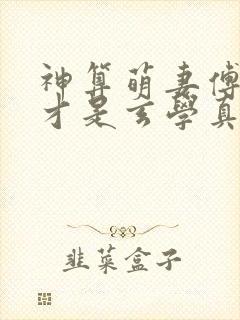 神算萌妻傅
才是玄學真
韭菜盒子